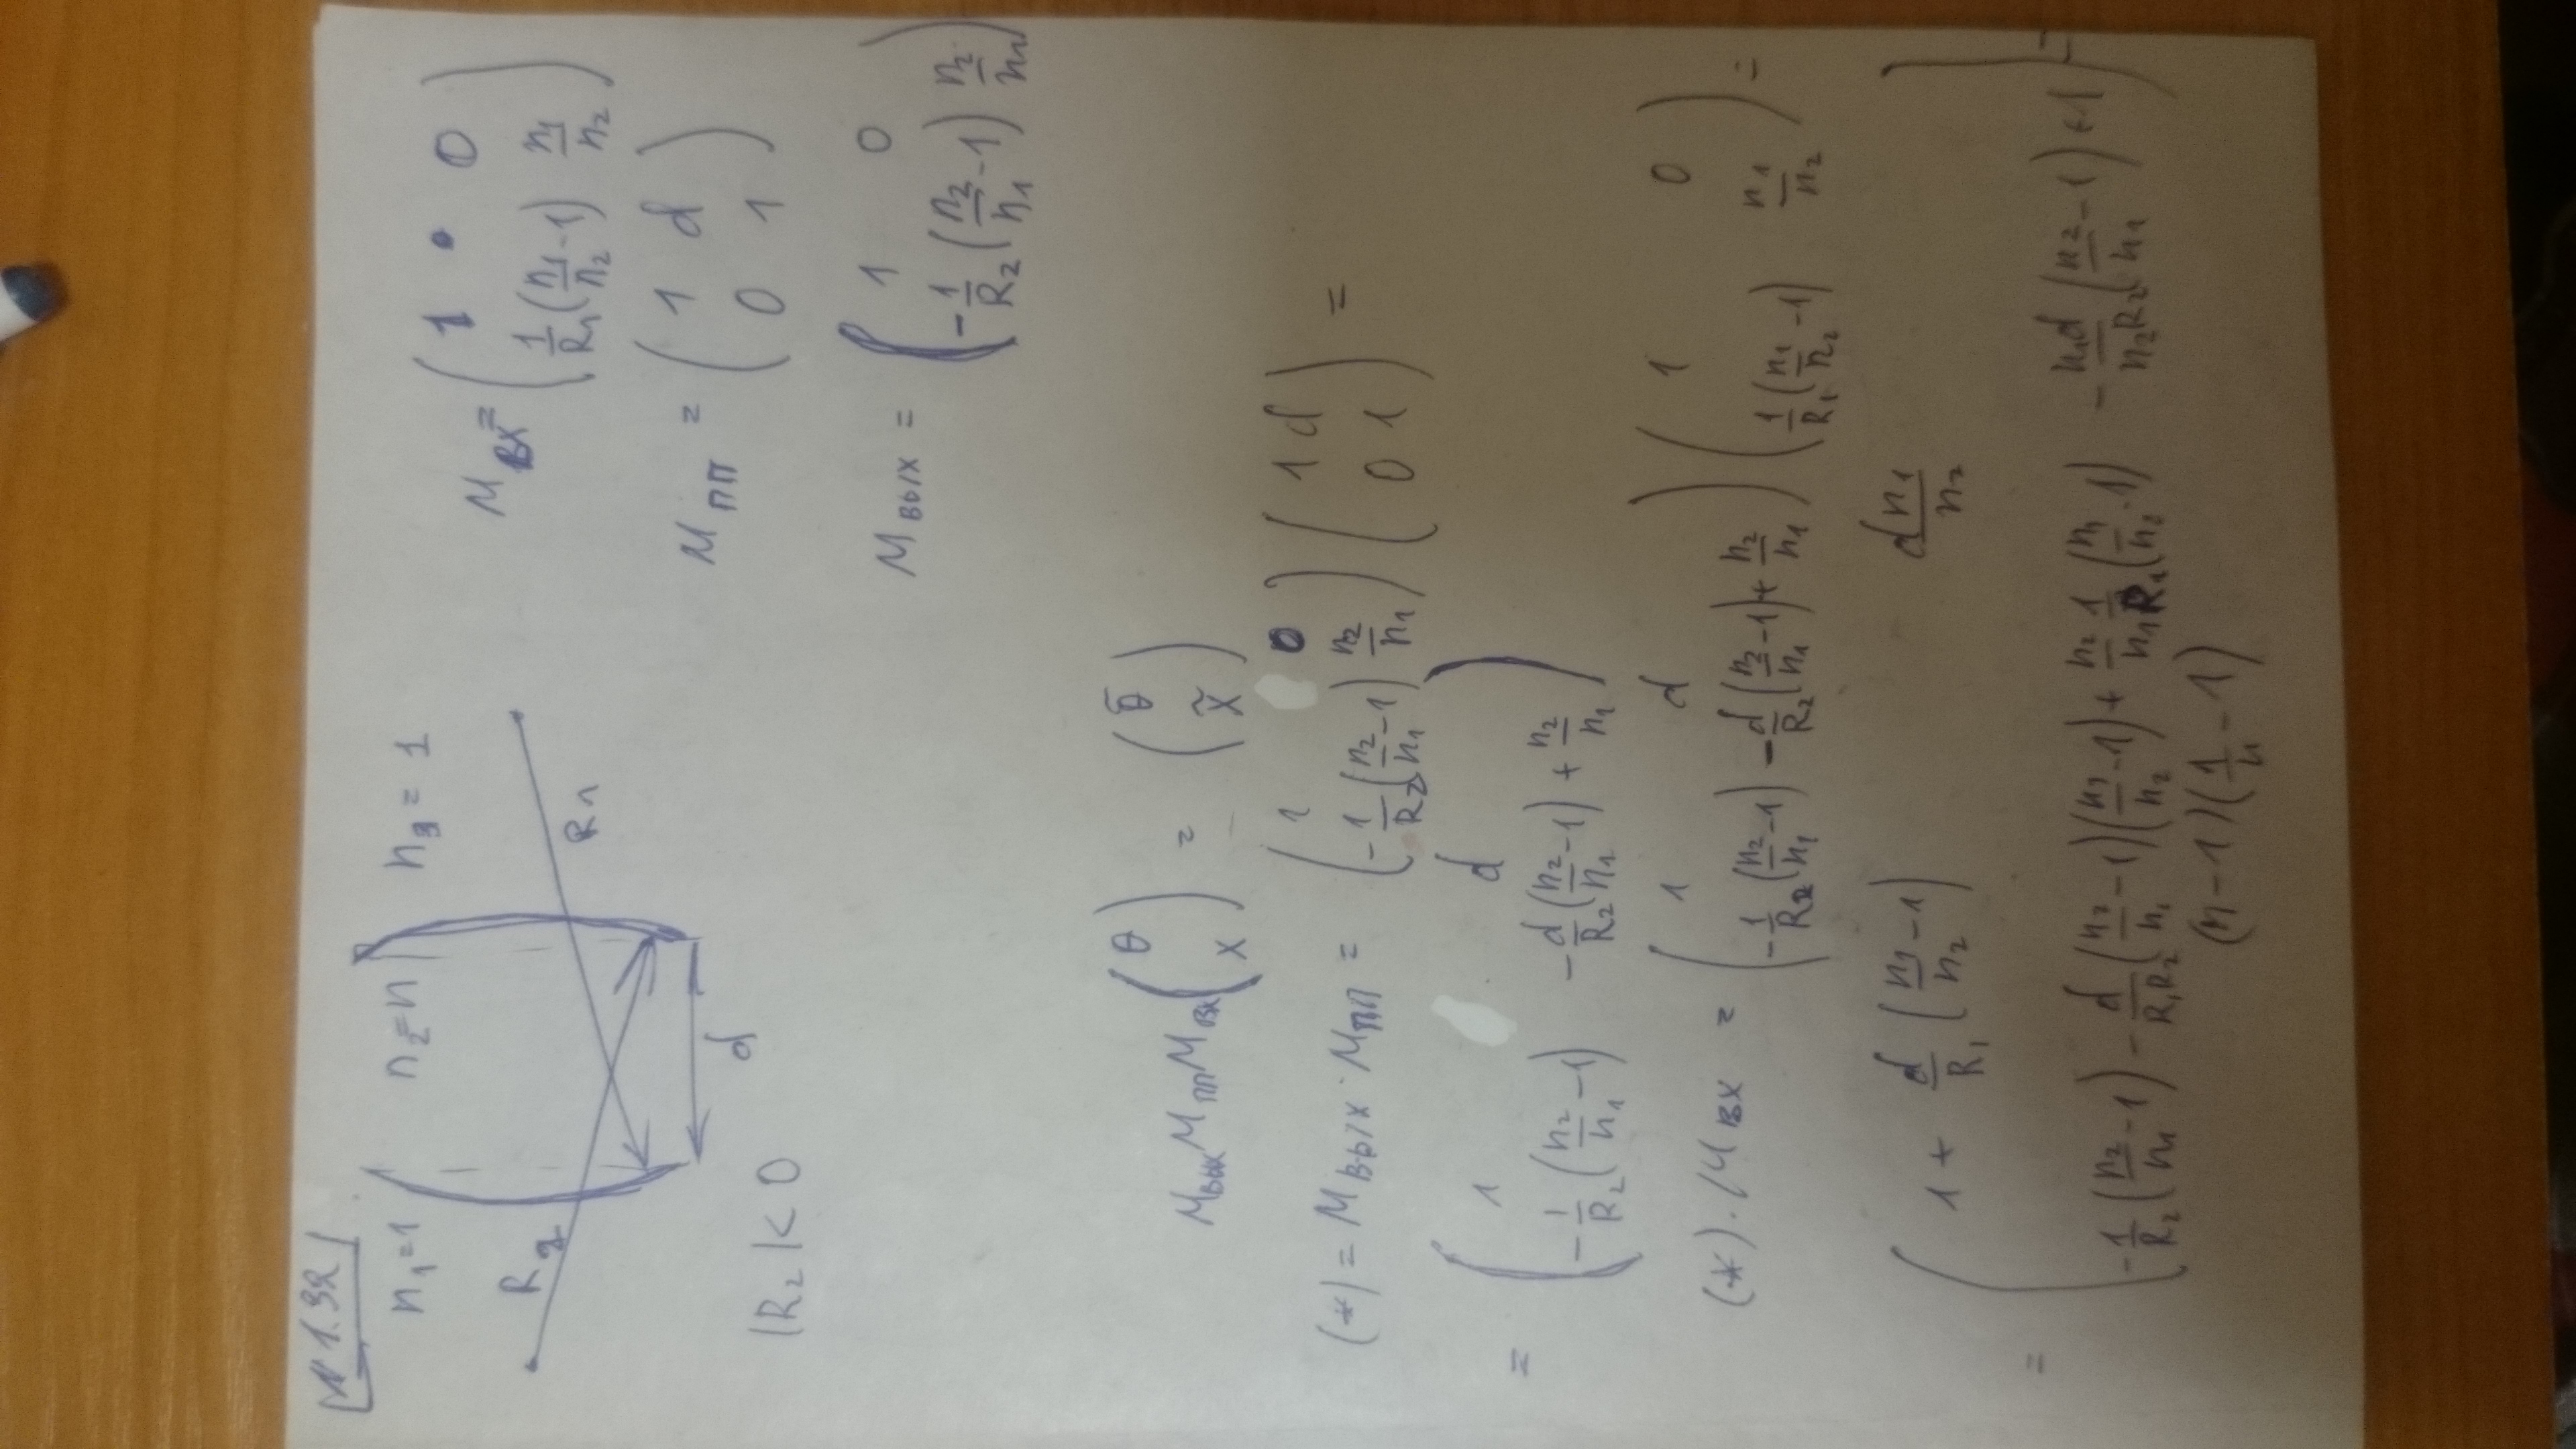 № 1.32
n₁=1 n₂=n n₃=1
R₂ R₁
d
|R₂|<0
M_вх = ( 1 0 ; 1/R₁(n₁/n₂-1) n₁/n₂ )
M_пп = ( 1 d ; 0 1 )
M_вых = ( 1 0 ; -1/R₂(n₂/n₁-1) n₂/n₁ )
M_вых M_пп M_вх ( θ ; x ) = ( θ̃ ; x̃ )
(*) = M_вых · M_пп = ( 1 0 ; -1/R₂(n₂/n₁-1) n₂/n₁ ) ( 1 d ; 0 1 ) =
= ( 1 d ; -1/R₂(n₂/n₁-1) -d/R₂(n₂/n₁-1)+n₂/n₁ )
(*)·M_вх = ( 1 d ; -1/R₂(n₂/n₁-1) -d/R₂(n₂/n₁-1)+n₂/n₁ ) ( 1 0 ; 1/R₁(n₁/n₂-1) n₁/n₂ ) =
= ( 1+d/R₁(n₁/n₂-1) d n₁/n₂ ; -1/R₂(n₂/n₁-1)-d/R₁R₂(n₂/n₁-1)(n₁/n₂-1)+n₂/n₁ 1/R₁(n₁/n₂-1) -n₁d/n₂R₂(n₂/n₁-1)+1 )
(n-1)(1/n-1)